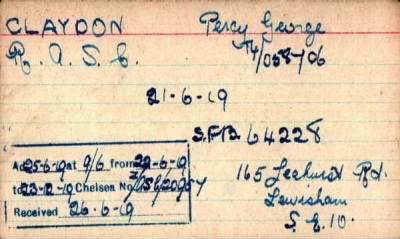 CLAYDON Percy George
R. A. S. C. T4/058706
21-6-19
S.F.B. 64228
Ad 25-6-19 at 9/6 from 22-6-19
to 23-12-19 Chelsea No
Received 26-6-19
165 Leehurst Rd.
Lewisham
S. E. 10.